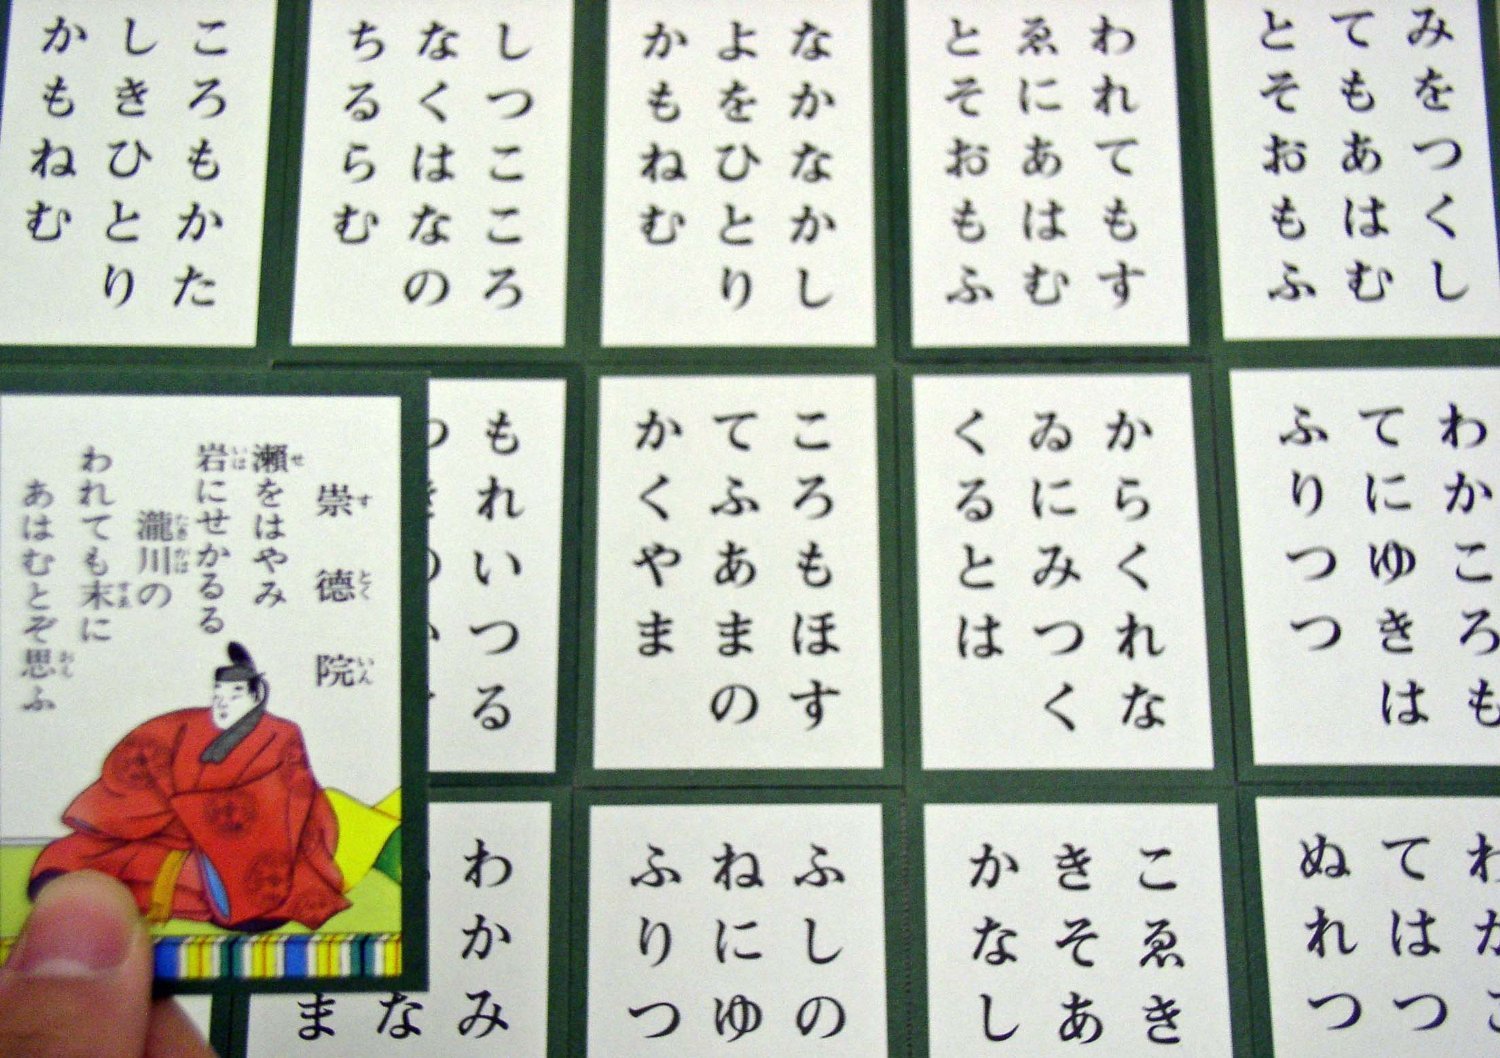 みをつくし
てもあはむ
とそおもふ
われてもす
ゑにあはむ
とそおもふ
なかなかし
よをひとり
かもねむ
しつこころ
なくはなの
ちるらむ
ころもかた
しきひとり
かもねむ
わかころも
てにゆきは
ふりつつ
からくれな
ゐにみつく
くるとは
ころもほす
てふあまの
かくやま
もれいつる
崇徳院
瀬をはやみ
岩にせかるる
瀧川の
われても末に
あはむとぞ思ふ
てはつ
ぬれつ
こゑき
きそあ
かなし
ふしの
ねにゆ
ふりつ
わかみ
な
ま